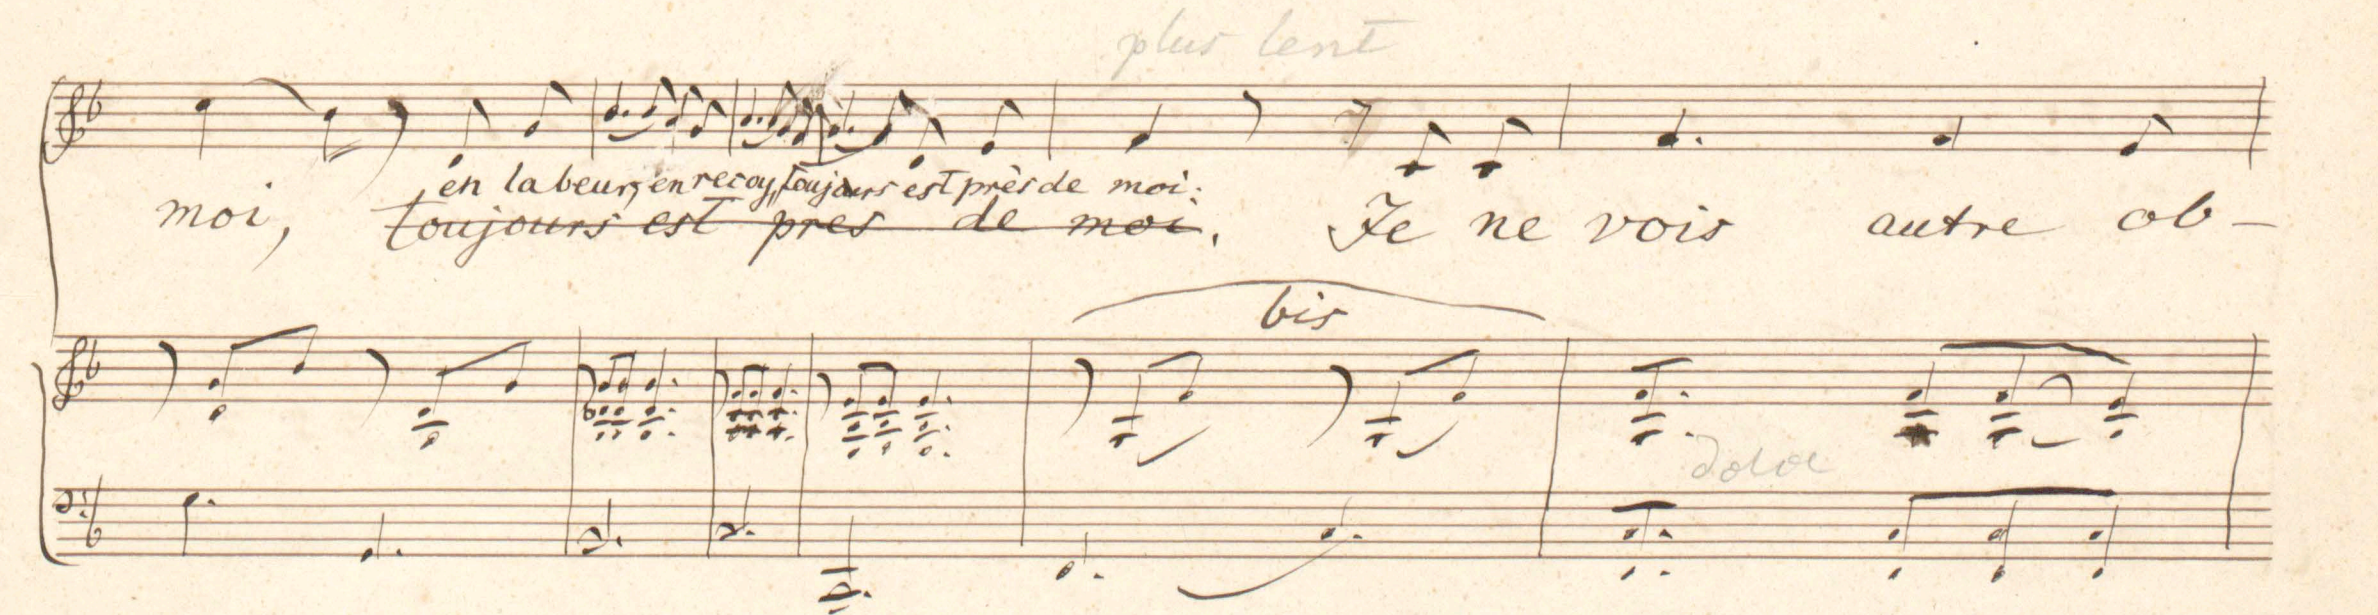 plus lent
en labeur, en recoy, toujours est près de moi:
moi, toujours est pres de moi. Je ne vois autre ob-
bis
dolce